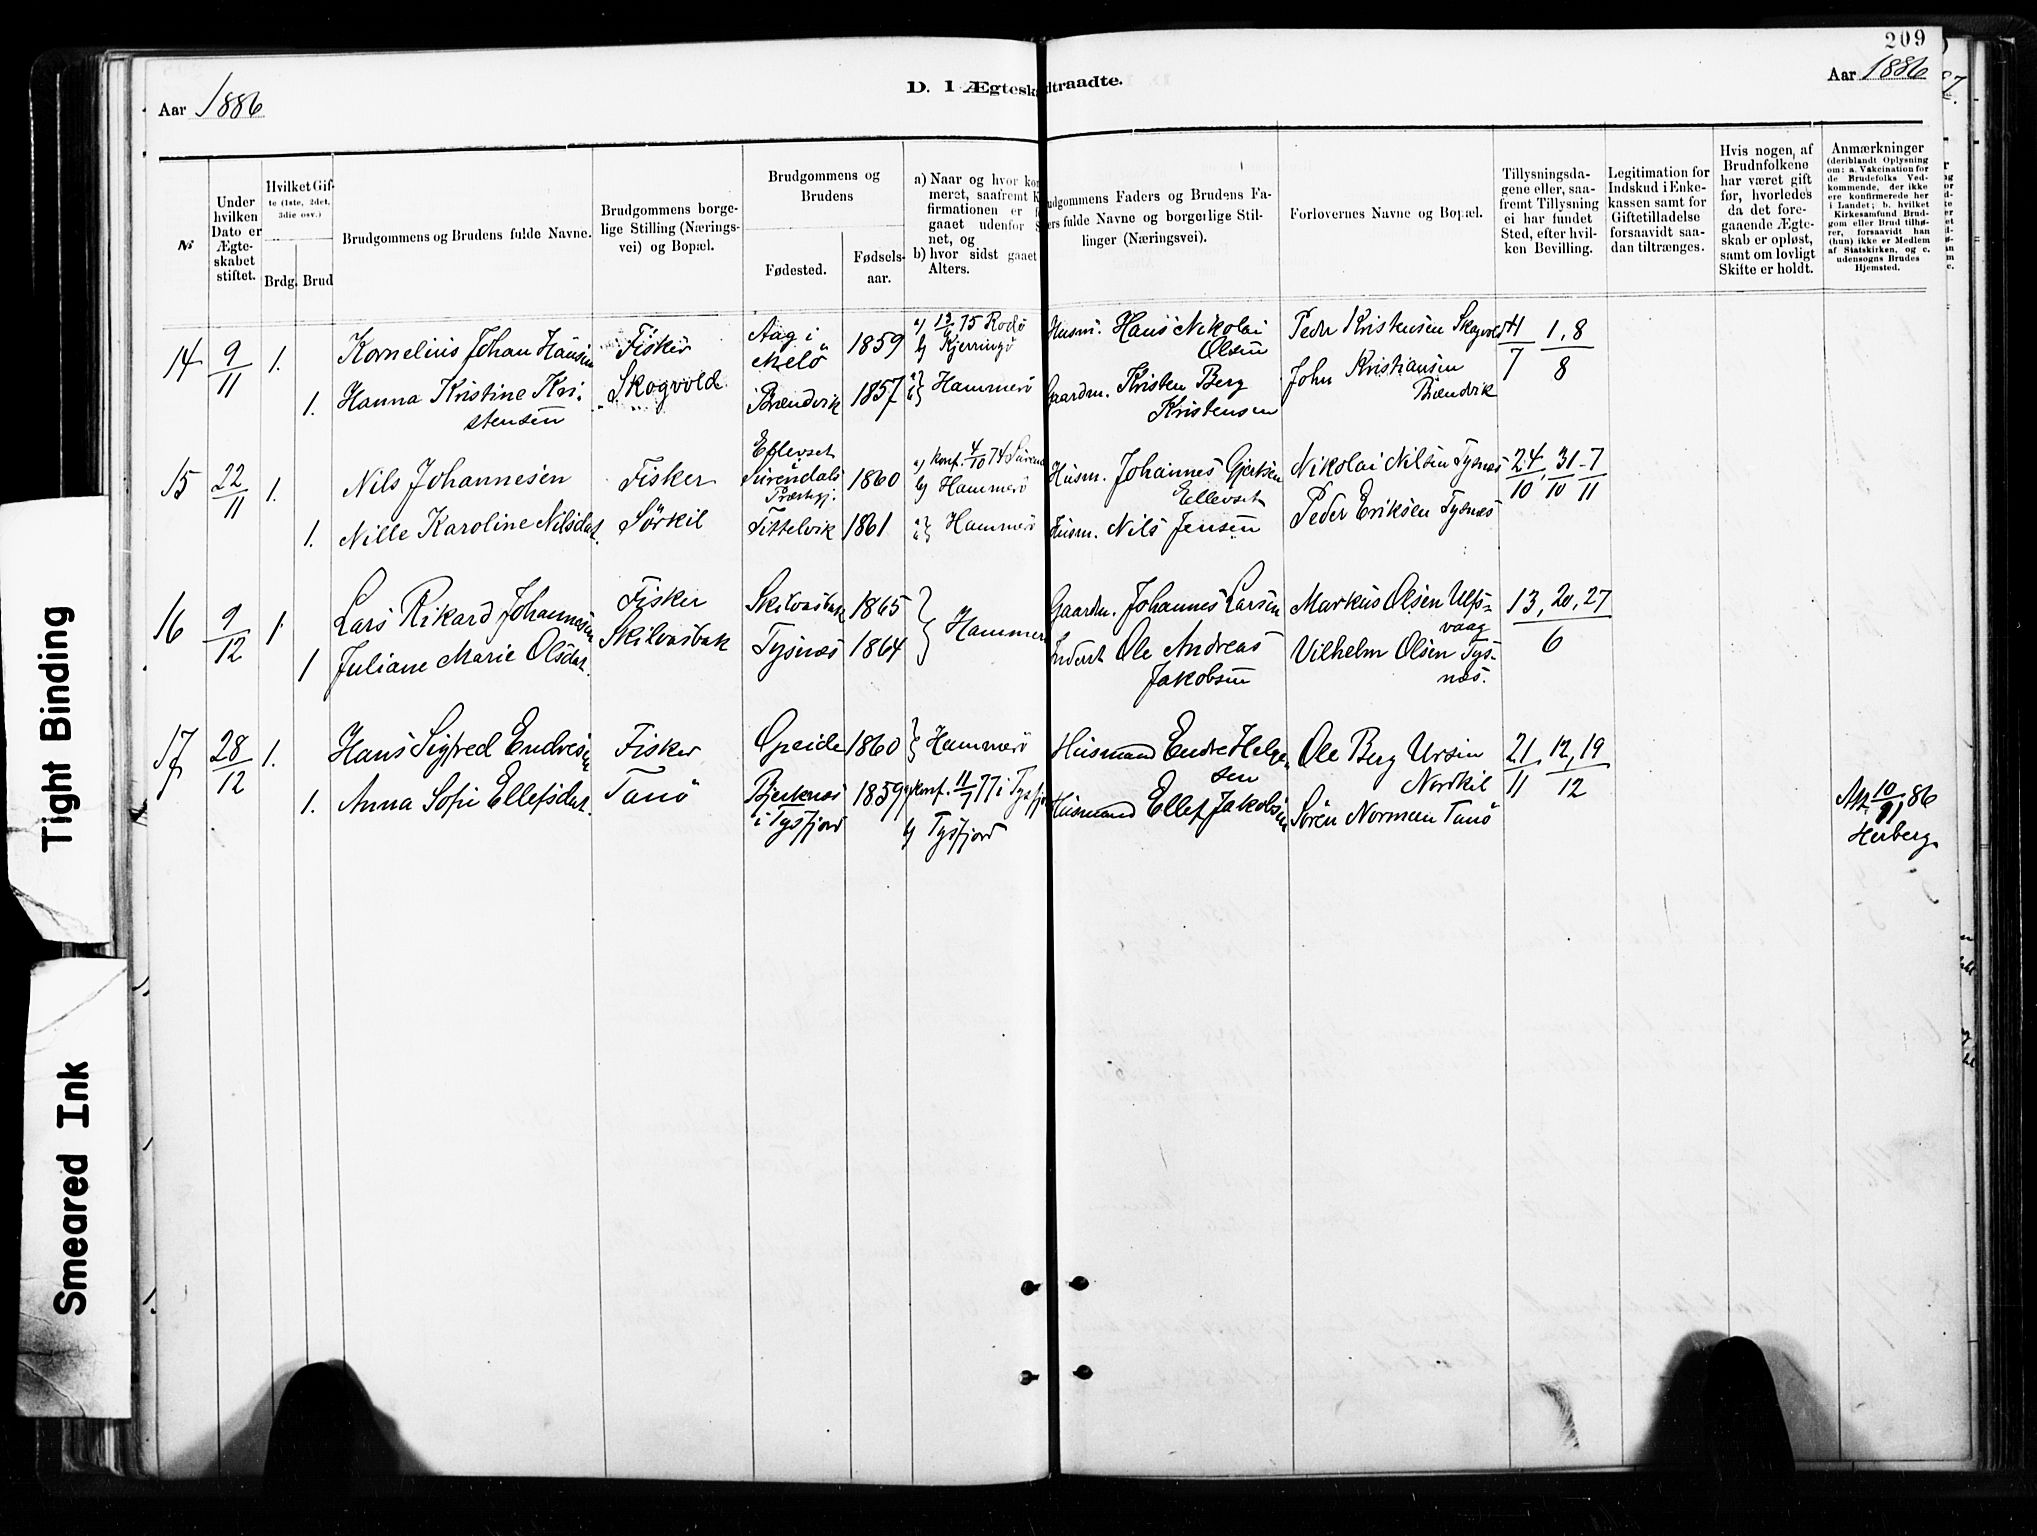 209
Aar 1886
D. I Ægteskabtraadte.
Aar 1886
№
Under hvilken Dato er Ægteskabet stiftet.
Hvilket Gifte (1ste, 2det, 3die osv.)
Brdg. Brud
Brudgommens og Brudens fulde Navne.
Brudgommens borgelige Stilling (Næringsvei) og Bopæl.
Brudgommens og Brudens
Fødested.
Fødselsaar.
a) Naar og hvor kon
meret, saafremt K
firmationen er f
gaaet udenfor S
net, og
b) hvor sidst gaaet
Alters.
udgommens Faders og Brudens Fa-
ers fulde Navne og borgerlige Stil-
linger (Næringsvei).
Forlovernes Navne og Bopæl.
Tillysningsda-
gene eller, saa-
fremt Tillysning
ei har fundet
Sted, efter hvil-
ken Bevilling.
Legitimation for
Indskud i Enke-
kassen samt for
Giftetilladelse
forsaavidt saa-
dan tiltrænges.
Hvis nogen af
Brudnfolkene
har været gift
før, hvorledes
da det fore-
gaaende Ægte-
skab er opløst,
samt om lovligt
Skifte er holdt.
Anmærkninger
(deriblandt Oplysning
om: a. Vakcination for
de Brudefolks Ved-
kommende, der ikke
ere konfirmerede her
i Landet; b. hvilket
Kirkesamfund Brud-
gom eller Brud tilhø-
rer, forsaavidt han
(hun) ikke er Medlem
af Statskirken, og c.
udensogns Brudes
Hjemsted.
14 9/11 1. Kornelius Johan Hansen Fisker Aag i Melö 1859 a) 75 Rodö b) Kjerringö Husm. Hans Nikolai Olsen Peder Kristensen Skogvold 1, 8
1. Hanna Kristine Kristensen Skogvold Brændvik 1857 Hammerö Gaardm. Kristen Berg Kristensen John Kristiansen Brændvik 7 8
15 22/11 1. Nils Johannesen Fisker Ellevset Surendals Præstgj. 1860 a) konf. 4/10 74 Suren b) Hammerö Husm. Johannes Gjertsen Ellevset Nikolai Nilsen Tysnæs 24/10, 31/10 - 7/11
1. Nille Karoline Nilsdat. Sörkil Tittelvik 1861 Hammerö Husm. Nils Jensen Peder Eriksen Tysnæs
16 9/12 1 Lars Rikard Johannesen Fisker Skilvasbak 1865 Hammer Gaardm. Johannes Larsen Markus Olsen Ulfsvaag 13, 20, 27
1 Juliane Marie Olsdat. Skilvasbak Tysnæs 1864 Inderst Ole Andreas Jakobsen Vilhelm Olsen Tysnæs. 6
17 28/12 1. Hans Sigfred Endresen Fisker Opeide 1860 Hammerö Husmand Endre Helgesen Ole Berg Ursin Nordkil 21/11, 12, 19/12
1. Anna Sofie Ellefsdat. Tanö Bjerknes i Tysfjord 1859 a) konf. 11/7 77 i Tysfjo b) Tysfjord Husmand Ellef Jakobsen Sören Norman Tanö 10/11 86 Herberg
Tight Binding
Smeared Ink